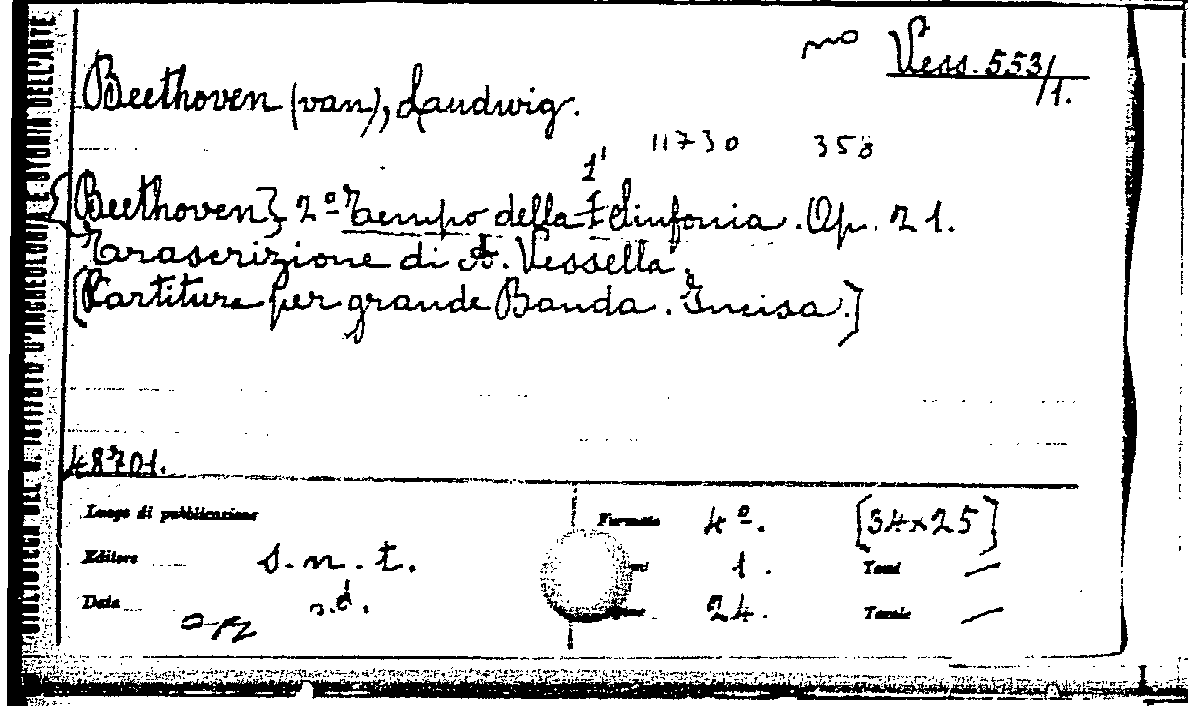 BIBLIOTECA DEL R. ISTITUTO D'ARCHEOLOGIA E STORIA DELL'ARTE
mo Vess. 553/1.
Beethoven (van), Laudwig.
11730 358
1ª
[Beethoven] 2º Tempo della I Sinfonia. Op. 21.
Trascrizione di A. Vessella.
[Partitura per grande Banda. Incisa.]
48701.
Luogo di pubblicazione Formato 4º. [34x25]
Editore s.n.t. 1. Tomi —
Data s.d. 24. Tavole —